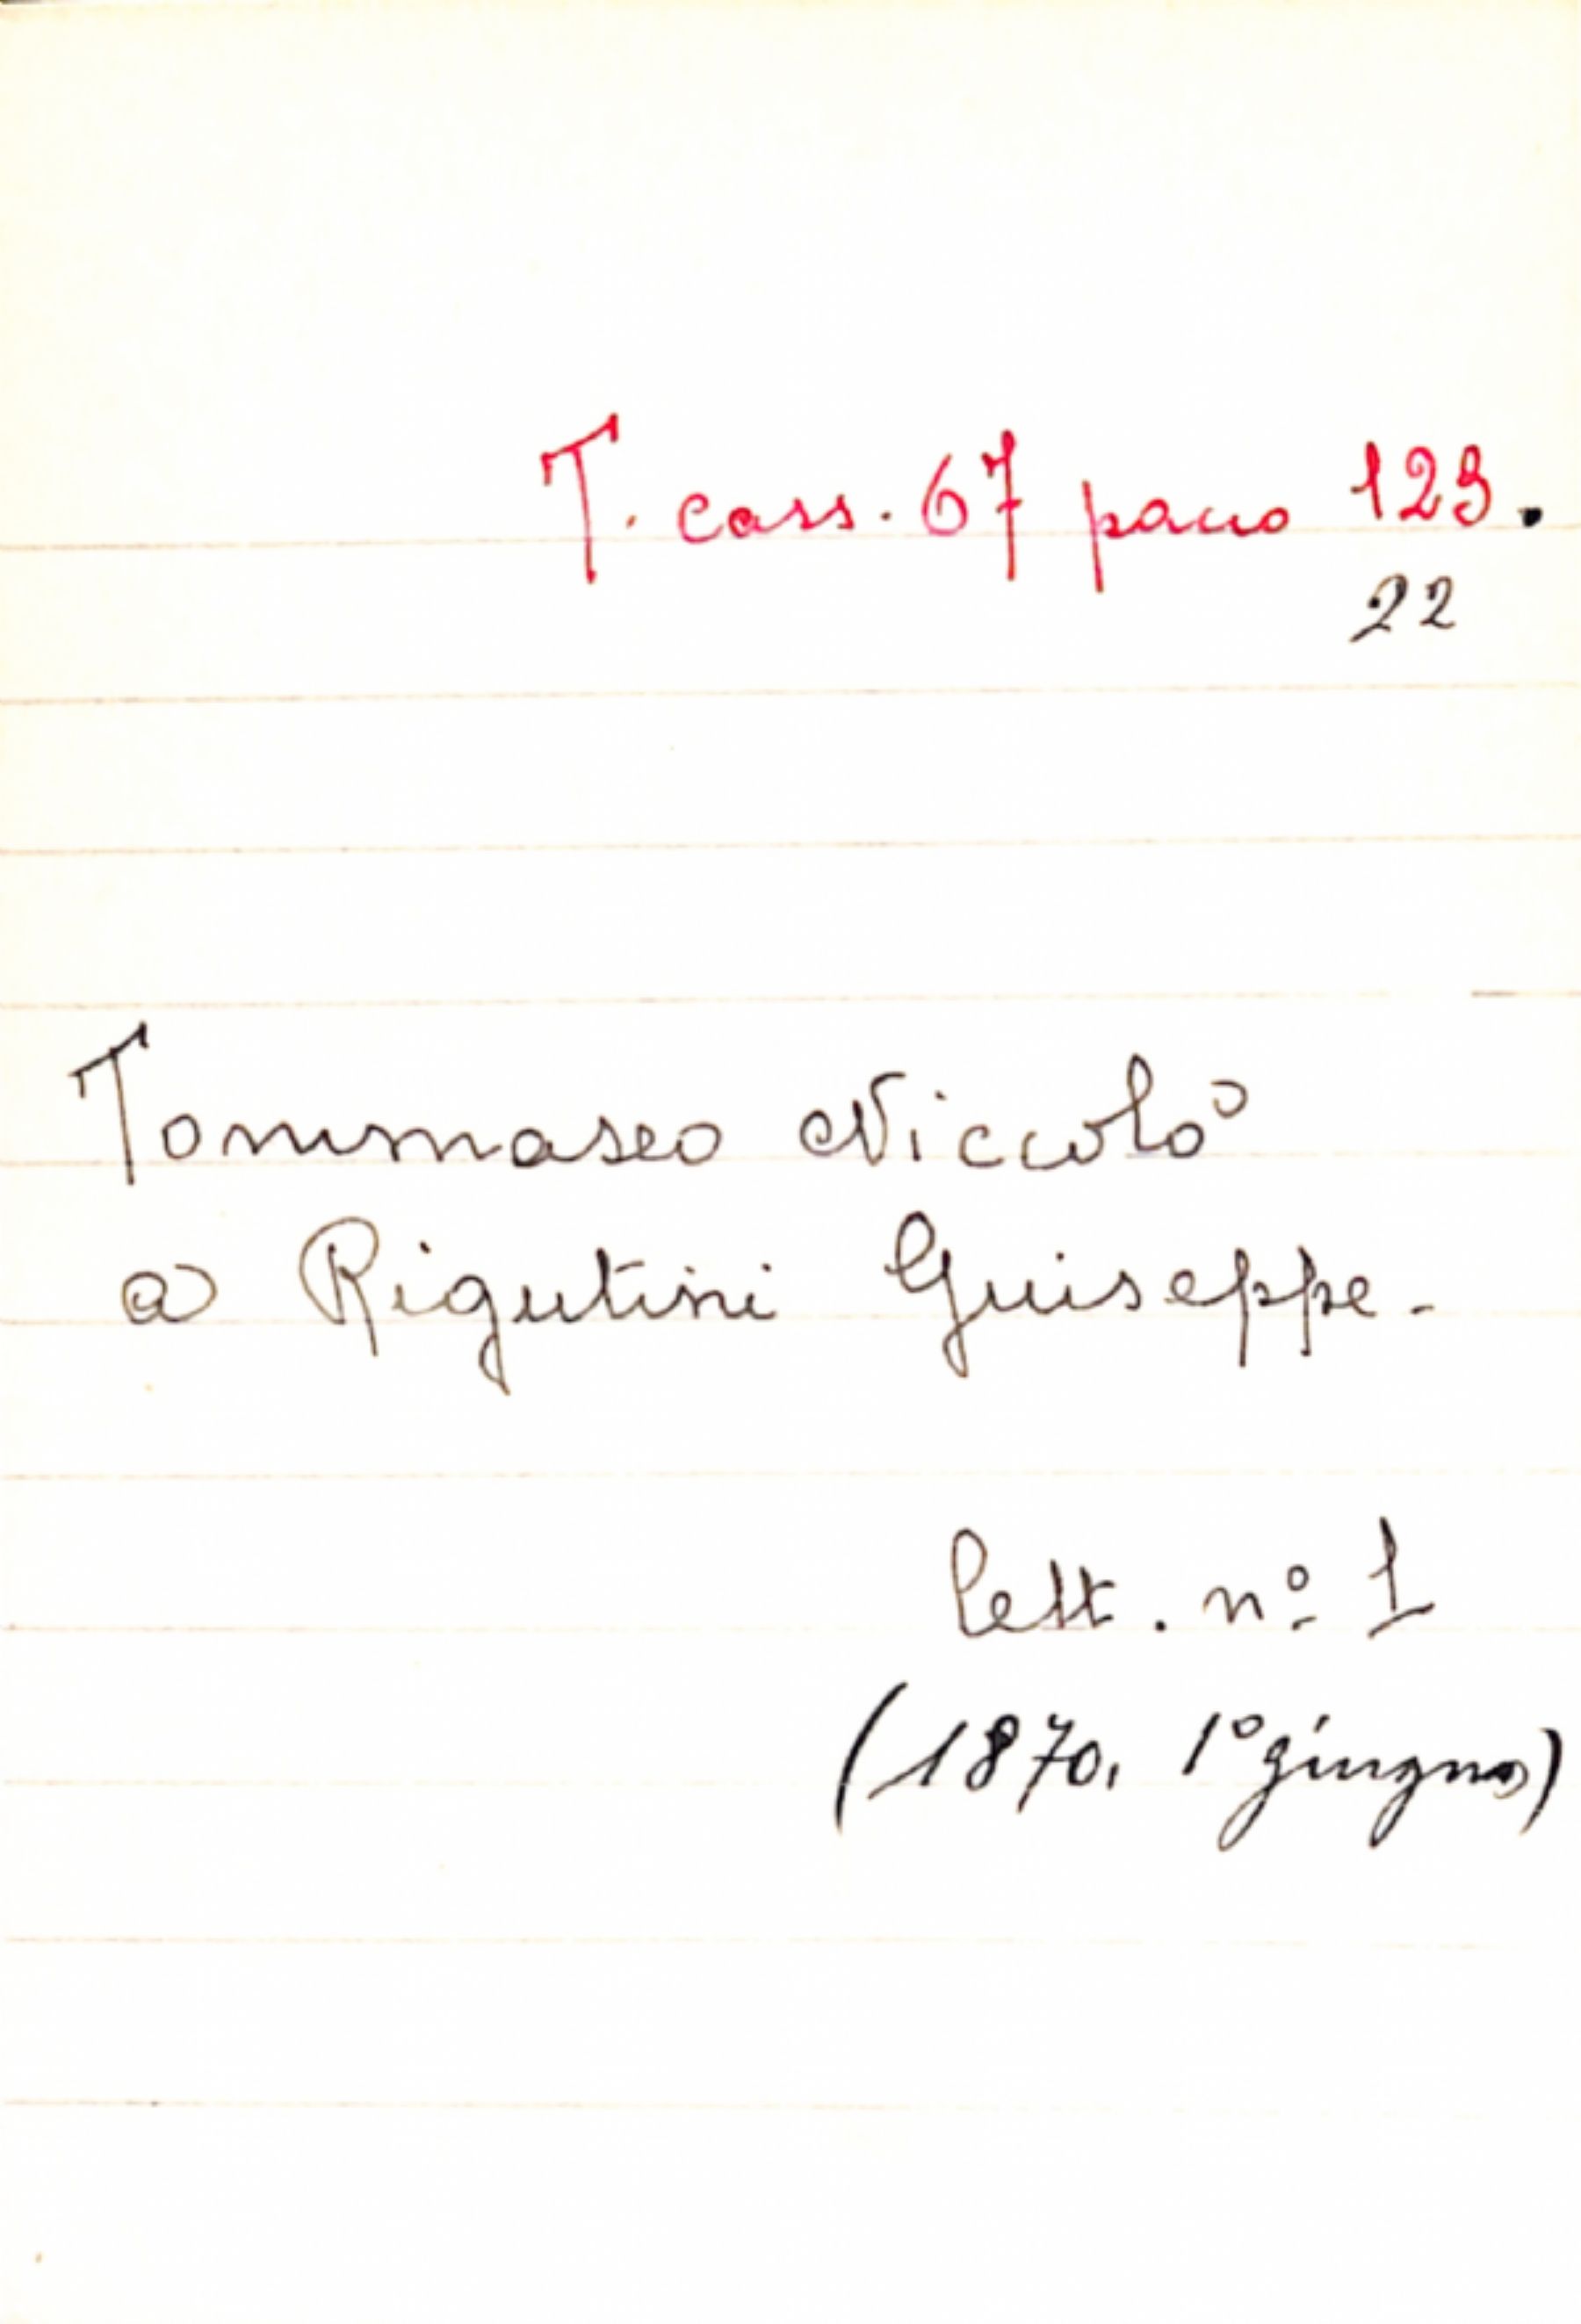 T. cass. 67 pacco 123.
22
Tommaseo Niccolò
a Rigutini Giuseppe.
lett. nº 1
(1870, 1º giugno)